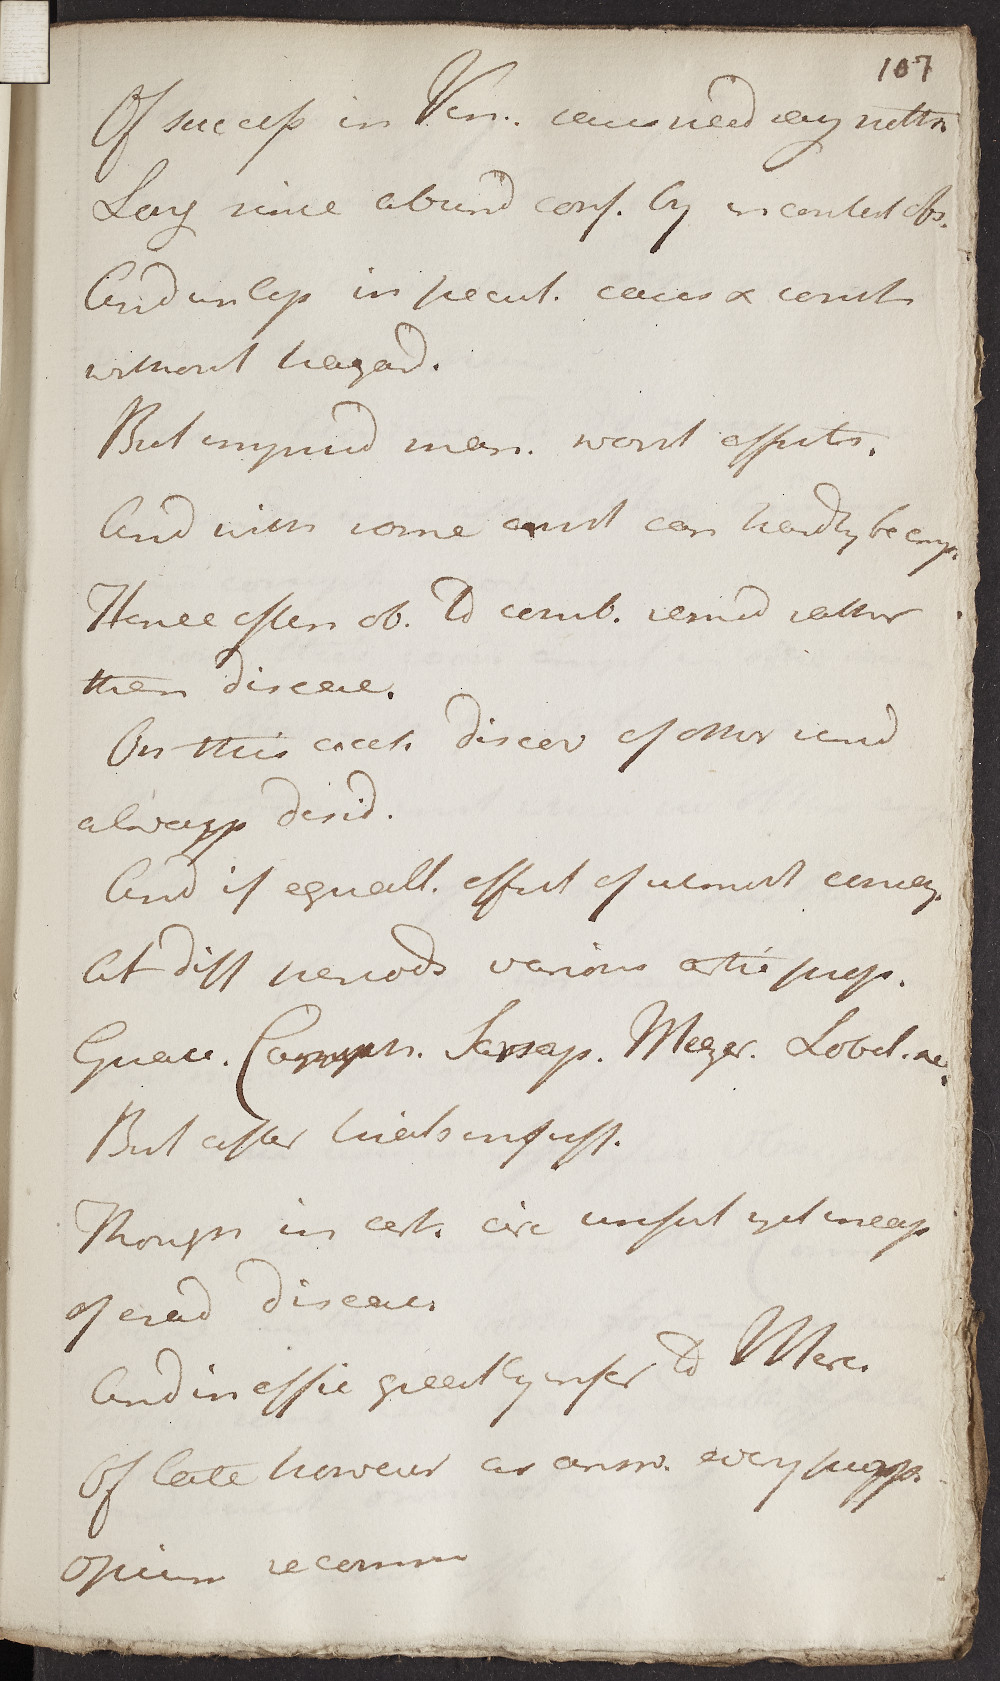 107
Of success in Ven. cases need say noth
Long since abund conf. by incontest obs.
And unless in pecul. cases & const
without hazard.
But in many worst effects.
And with some const can hardly be emp.
Hence often ob. to comb. remed rather
then disease.
On this acct. discov of other rem
always desid.
And if equall. effect of utmost conseq.
At diff periods various artic prop.
Guaic. Sarsap. Mezer. Lobel. &c.
But after trials insuff.
Though in cert. circ useful yet incap
of erad disease
And in effic greatly infer to Merc.
Of late however as answ. every purpose.
opium recomm